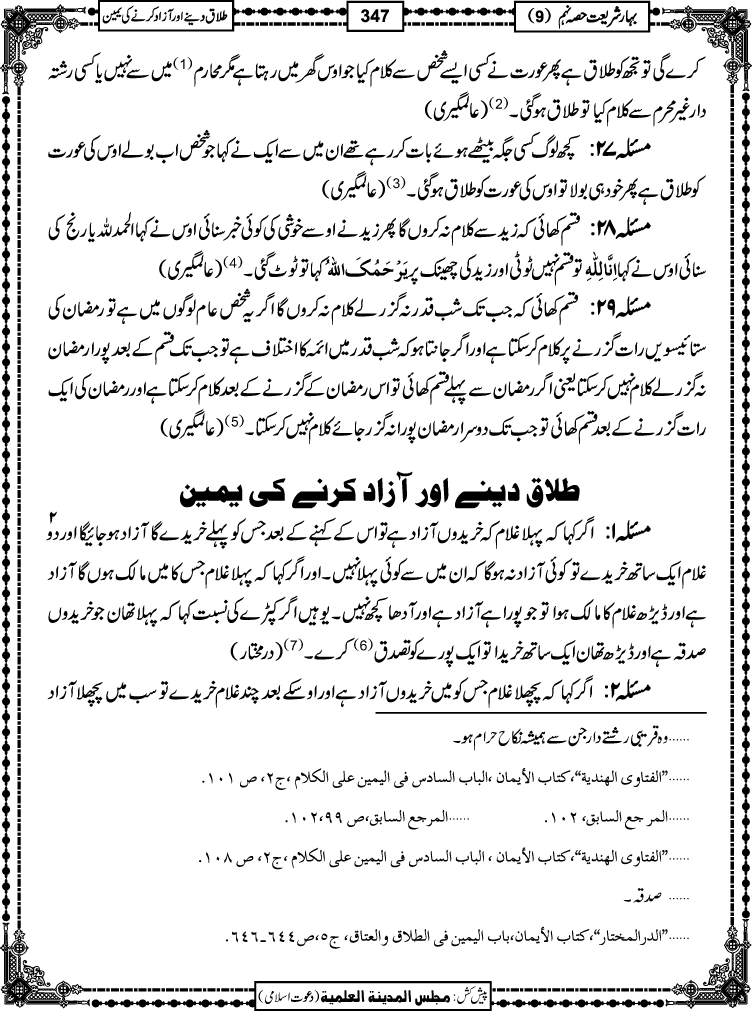 بہار شریعت حصہ نہم (9)
347
طلاق دینے اور آزاد کرنے کی یمین
کرے گی تو تجھ کو طلاق ہے پھر عورت نے کسی ایسے شخص سے کلام کیا جو اوس گھر میں رہتا ہے مگر محارم (1) میں سے نہیں یا کسی رشتہ
دار غیر محرم سے کلام کیا تو طلاق ہوگئی۔ (2) (عالمگیری)
مسئلہ ۲۷: کچھ لوگ کسی جگہ بیٹھے ہوئے بات کر رہے تھے ان میں سے ایک نے کہا جو شخص اب بولے اوس کی عورت
کو طلاق ہے پھر خود ہی بولا تو اوس کی عورت کو طلاق ہوگئی۔ (3) (عالمگیری)
مسئلہ ۲۸: قسم کھائی کہ زید سے کلام نہ کروں گا پھر زید نے اوسے خوشی کی کوئی خبر سنائی اوس نے کہا الحمدللہ یا رنج کی
سنائی اوس نے کہا اِنَّا لِلّٰہِ تو قسم نہیں ٹوٹی اور زید کی چھینک پر یَرْحَمُکَ اللہُ کہا تو ٹوٹ گئی۔ (4) (عالمگیری)
مسئلہ ۲۹: قسم کھائی کہ جب تک شب قدر نہ گزرلے کلام نہ کروں گا اگر یہ شخص عام لوگوں میں ہے تو رمضان کی
ستائیسویں رات گزرنے پر کلام کرسکتا ہے اور اگر جانتا ہو کہ شب قدر میں ائمہ کا اختلاف ہے تو جب تک قسم کے بعد پورا رمضان
نہ گزرلے کلام نہیں کرسکتا یعنی اگر رمضان سے پہلے قسم کھائی تو اس رمضان کے گزرنے کے بعد کلام کرسکتا ہے اور رمضان کی ایک
رات گزرنے کے بعد قسم کھائی تو جب تک دوسرا رمضان پورا نہ گزر جائے کلام نہیں کرسکتا۔ (5) (عالمگیری)
طلاق دینے اور آزاد کرنے کی یمین
مسئلہ ۱: اگر کہا کہ پہلا غلام کہ خریدوں آزاد ہے تو اس کے کہنے کے بعد جس کو پہلے خریدے گا آزاد ہوجائیگا اور دو ۲
غلام ایک ساتھ خریدے تو کوئی آزاد نہ ہوگا کہ ان میں سے کوئی پہلا نہیں۔ اور اگر کہا کہ پہلا غلام جس کا میں مالک ہوں گا آزاد
ہے اور ڈیڑھ غلام کا مالک ہوا تو جو پورا ہے آزاد ہے اور آدھا کچھ نہیں۔ یوہیں اگر کپڑے کی نسبت کہا کہ پہلا تھان جو خریدوں
صدقہ ہے اور ڈیڑھ تھان ایک ساتھ خریدا تو ایک پورے کو تصدق (6) کرے۔ (7) (درمختار)
مسئلہ ۲: اگر کہا کہ پچھلا غلام جس کو میں خریدوں آزاد ہے اور اوسکے بعد چند غلام خریدے تو سب میں پچھلا آزاد
......وہ قریبی رشتے دار جن سے ہمیشہ نکاح حرام ہو۔
......”الفتاوی الهندية“،كتاب الأيمان ،الباب السادس فی اليمين على الكلام ،ج٢، ص ١٠١.
......المرجع السابق، ١٠٢. ......المرجع السابق،ص ١٠٢،٩٩.
......”الفتاوی الهندية“،كتاب الأيمان ، الباب السادس فی اليمين على الكلام ،ج٢، ص ١٠٨.
...... صدقہ۔
......”الدرالمختار“،كتاب الأيمان،باب اليمين فی الطلاق والعتاق، ج٥،ص٦٤٤-٦٤٦.
پیش کش: مجلس المدينة العلمية (دعوت اسلامی)